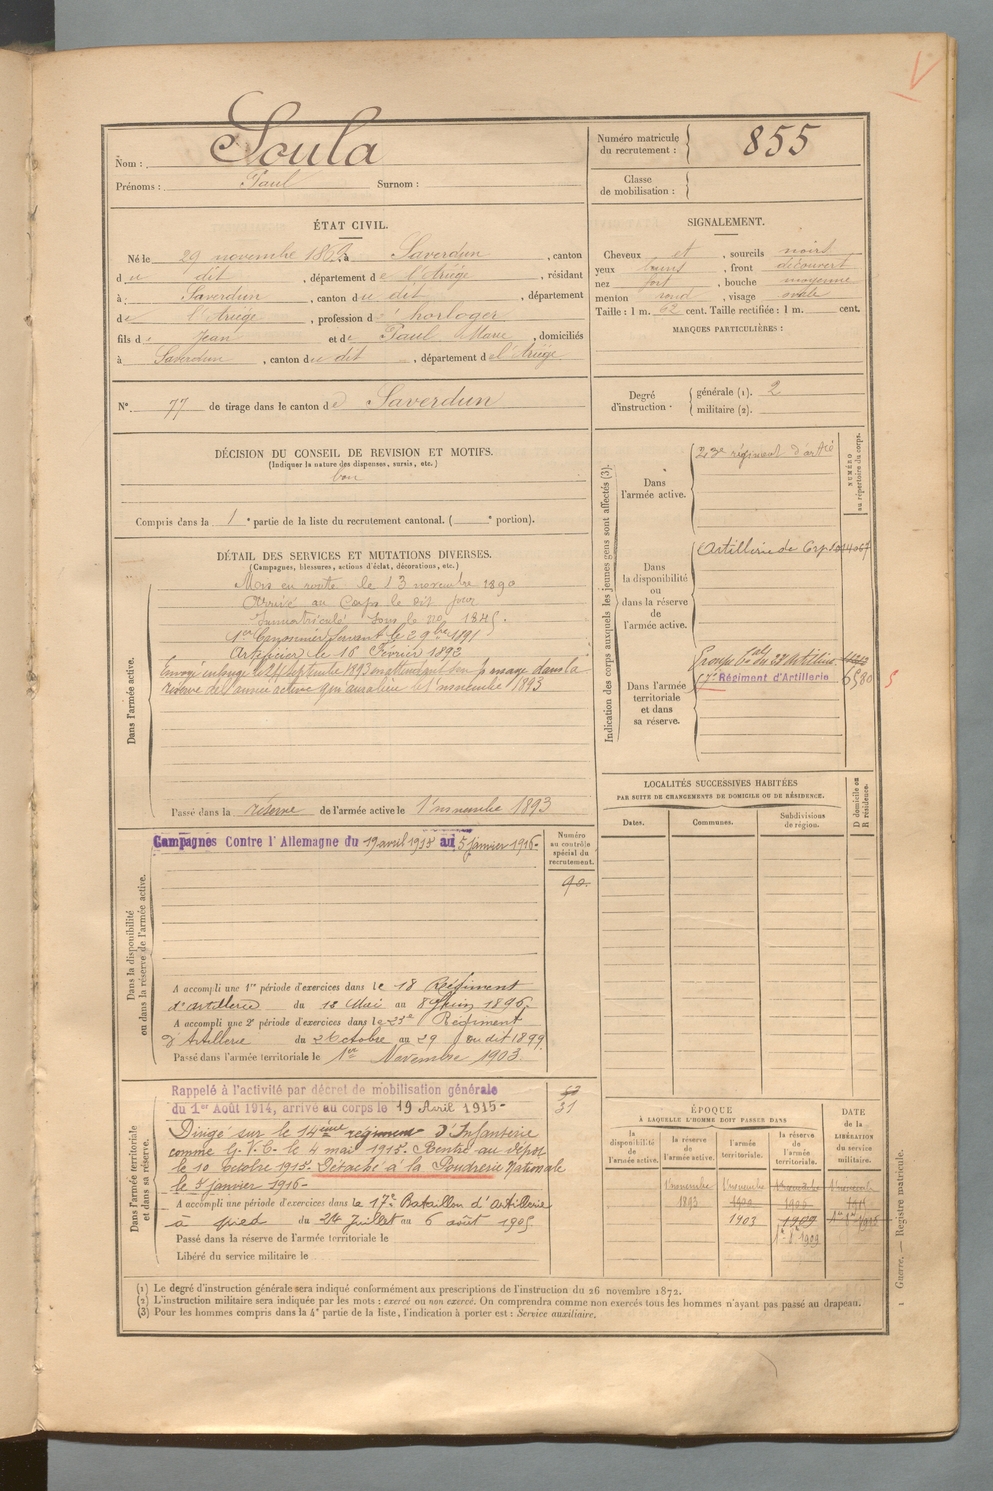 Nom : Soula
Prénoms : Paul Surnom :
Numéro matricule du recrutement : 855
Classe de mobilisation :
ÉTAT CIVIL.
Né le 29 novembre à Saverdun, canton
du dit, département de l'Ariège, résidant
à Saverdun, canton du dit, département
de l'Ariège, profession d'horloger
fils de Jean et de Paul Marie, domiciliés
à Saverdun, canton du dit, département de l'Ariège
N° 77 de tirage dans le canton de Saverdun
SIGNALEMENT.
Cheveux et, sourcils noirs
yeux bruns, front découvert
nez fort, bouche moyenne
menton rond, visage ovale
Taille : 1 m. 62 cent. Taille rectifiée : 1 m. cent.
MARQUES PARTICULIÈRES :
Degré d'instruction · générale (1). 2
militaire (2).
DÉCISION DU CONSEIL DE REVISION ET MOTIFS.
(Indiquer la nature des dispenses, sursis, etc.)
bon
Compris dans la 1e partie de la liste du recrutement cantonal. ( e portion).
DÉTAIL DES SERVICES ET MUTATIONS DIVERSES.
(Campagnes, blessures, actions d'éclat, décorations, etc.)
Dans l'armée active.
Mis en route le 13 novembre 1890
Arrivé au Corps le dit jour
Immatriculé sous le no 1845.
1er Canonnier Servant le 29 bre 1891
Artificier le 16 Février 1892
Envoyé en congé le 24 septembre 1893 en attendant son passage dans la
réserve de l'armée active qui aura lieu le 1er novembre 1893
Passé dans la réserve de l'armée active le 1er novembre 1893
Indication des corps auxquels les jeunes gens sont affectés (3).
NUMÉRO au répertoire du corps.
Dans l'armée active.
23e régiment d'artie
Dans la disponibilité ou dans la réserve de l'armée active.
Artillerie de Corps
Dans l'armée territoriale et dans sa réserve.
17e Régiment d'Artillerie 6580
5
LOCALITÉS SUCCESSIVES HABITÉES
PAR SUITE DE CHANGEMENTS DE DOMICILE OU DE RÉSIDENCE.
Dates. Communes. Subdivisions de région. D domicile ou R résidence.
Dans la disponibilité ou dans la réserve de l'armée active.
Campagnes Contre l'Allemagne du 19 avril 1915 au 5 janvier 1916-
Numéro au contrôle spécial du recrutement.
90.
A accompli une 1re période d'exercices dans le 18 Régiment
d'artillerie du 18 Mai au 8 Juin 1896.
A accompli une 2e période d'exercices dans le 23e Régiment
d'Artillerie du 2 Octobre au 29 du dit 1899
Passé dans l'armée territoriale le 1er Novembre 1903.
Dans l'armée territoriale et dans sa réserve.
Rappelé à l'activité par décret de mobilisation générale
du 1er Août 1914, arrivé au corps le 19 Avril 1915-
31
Dirigé sur le 14ème régiment d'Infanterie
comme G.V.C. le 4 mai 1915. Rentré au dépôt
le 10 octobre 1915. Détaché à la Poudrerie Nationale
le 7 janvier 1916-
A accompli une période d'exercices dans le 17e Bataillon d'artillerie
à pied du 24 juillet au 6 août 1905
Passé dans la réserve de l'armée territoriale le
Libéré du service militaire le
ÉPOQUE
À LAQUELLE L'HOMME DOIT PASSER DANS
la disponibilité de l'armée active. la réserve de l'armée active. l'armée territoriale. la réserve de l'armée territoriale.
DATE de la LIBÉRATION du service militaire.
1er novembre 1er novembre 1er novembre 1er novembre
1893 1900 1906 1915
1903 1909
1er 8bre 1909
(1) Le degré d'instruction générale sera indiqué conformément aux prescriptions de l'instruction du 26 novembre 1872.
(2) L'instruction militaire sera indiquée par les mots : exercé ou non exercé. On comprendra comme non exercés tous les hommes n'ayant pas passé au drapeau.
(3) Pour les hommes compris dans la 4e partie de la liste, l'indication à porter est : Service auxiliaire.
1 Guerre. — Registre matricule.